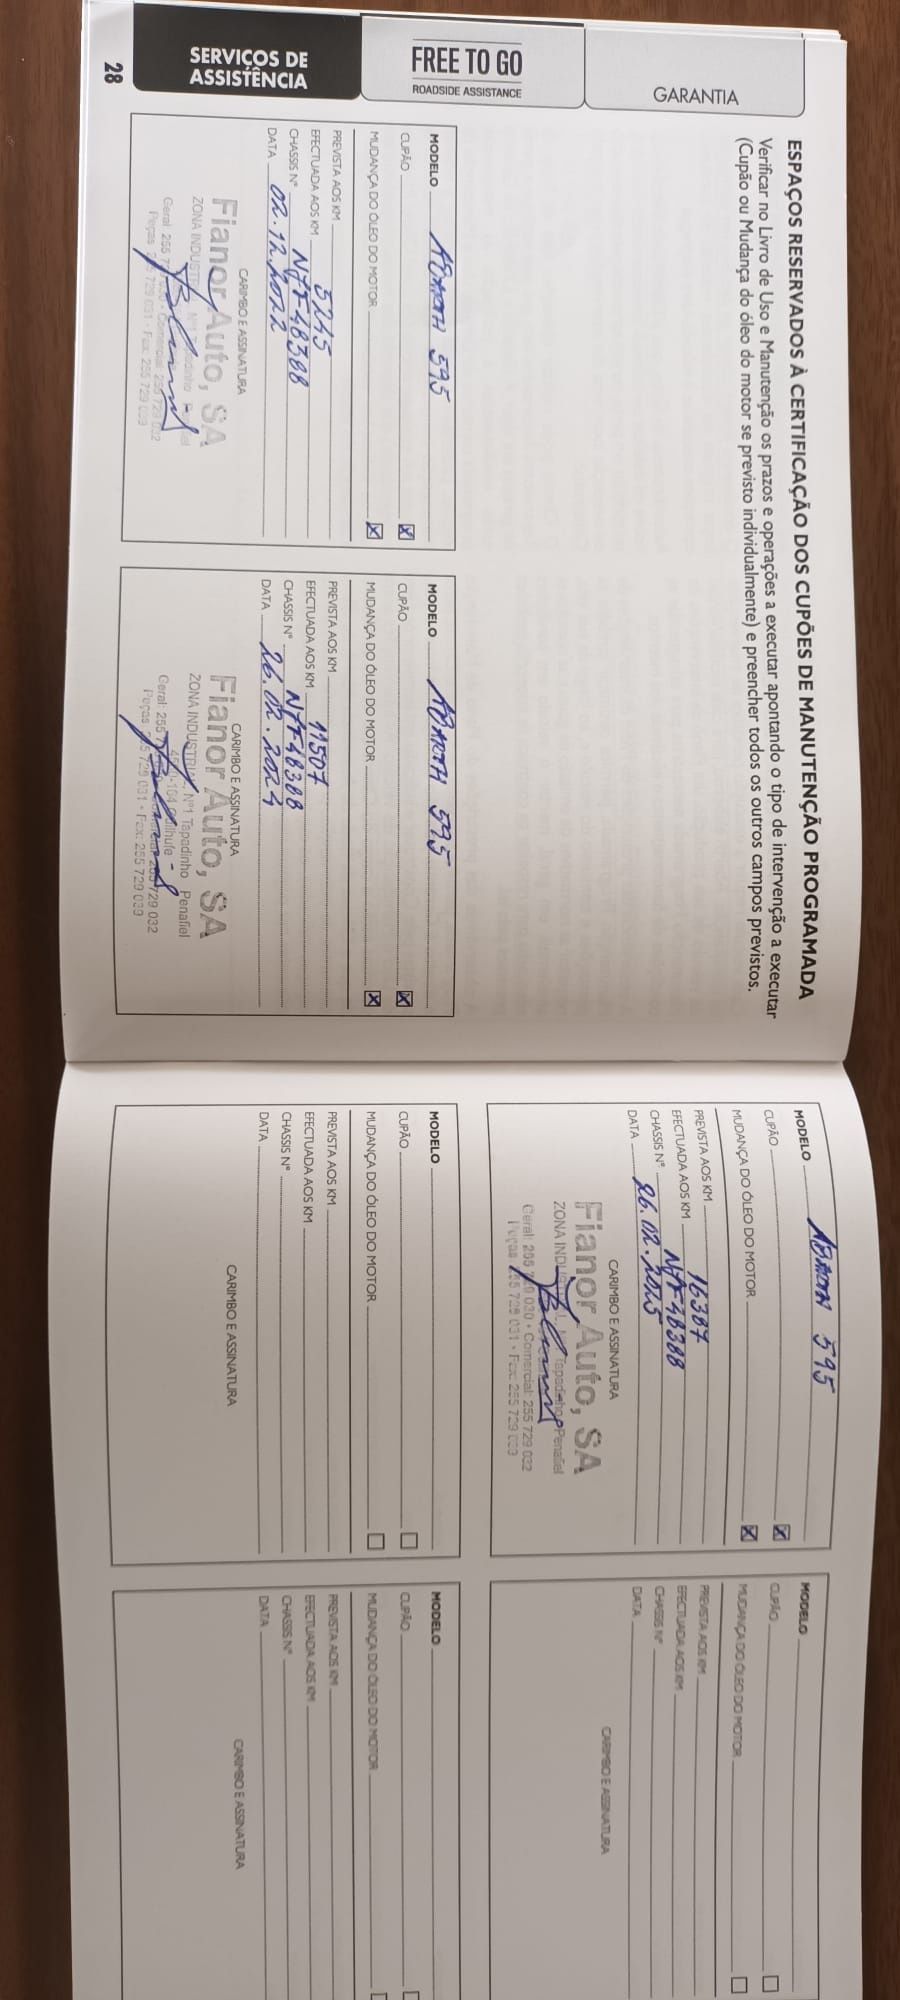 GARANTIA
FREE TO GO
ROADSIDE ASSISTANCE
SERVIÇOS DE
ASSISTÊNCIA
28
ESPAÇOS RESERVADOS À CERTIFICAÇÃO DOS CUPÕES DE MANUTENÇÃO PROGRAMADA
Verificar no Livro de Uso e Manutenção os prazos e operações a executar apontando o tipo de intervenção a executar
(Cupão ou Mudança do óleo do motor se previsto individualmente) e preencher todos os outros campos previstos.
MODELO ABARTH 595
CUPÃO X
MUDANÇA DO ÓLEO DO MOTOR X
PREVISTA AOS KM
EFECTUADA AOS KM 5215
CHASSIS N° NFF48388
DATA 02.12.2022
CARIMBO E ASSINATURA
Fianor Auto, SA
ZONA INDUSTRIAL, Nº1 Tapadinho Penafiel
Geral: 255 729 030 • Comercial: 255 729 032
Peças 255 729 031 • Fax: 255 729 033
MODELO ABARTH 595
CUPÃO X
MUDANÇA DO ÓLEO DO MOTOR X
PREVISTA AOS KM
EFECTUADA AOS KM 11507
CHASSIS N° NFF48388
DATA 26.02.2024
CARIMBO E ASSINATURA
Fianor Auto, SA
ZONA INDUSTRIAL, Nº1 Tapadinho Penafiel
Geral: 255 729 032
Peças 255 729 031 • Fax: 255 729 033
MODELO ABARTH 595
CUPÃO X
MUDANÇA DO ÓLEO DO MOTOR X
PREVISTA AOS KM
EFECTUADA AOS KM 16387
CHASSIS N° NFF48388
DATA 26.02.2025
CARIMBO E ASSINATURA
Fianor Auto, SA
ZONA INDUSTRIAL, Nº1 Tapadinho Penafiel
Geral: 255 729 030 • Comercial: 255 729 032
Peças 255 729 031 • Fax: 255 729 033
MODELO
CUPÃO
MUDANÇA DO ÓLEO DO MOTOR
PREVISTA AOS KM
EFECTUADA AOS KM
CHASSIS N°
DATA
CARIMBO E ASSINATURA
MODELO
CUPÃO
MUDANÇA DO ÓLEO DO MOTOR
PREVISTA AOS KM
EFECTUADA AOS KM
CHASSIS N°
DATA
CARIMBO E ASSINATURA
MODELO
CUPÃO
MUDANÇA DO ÓLEO DO MOTOR
PREVISTA AOS KM
EFECTUADA AOS KM
CHASSIS N°
DATA
CARIMBO E ASSINATURA